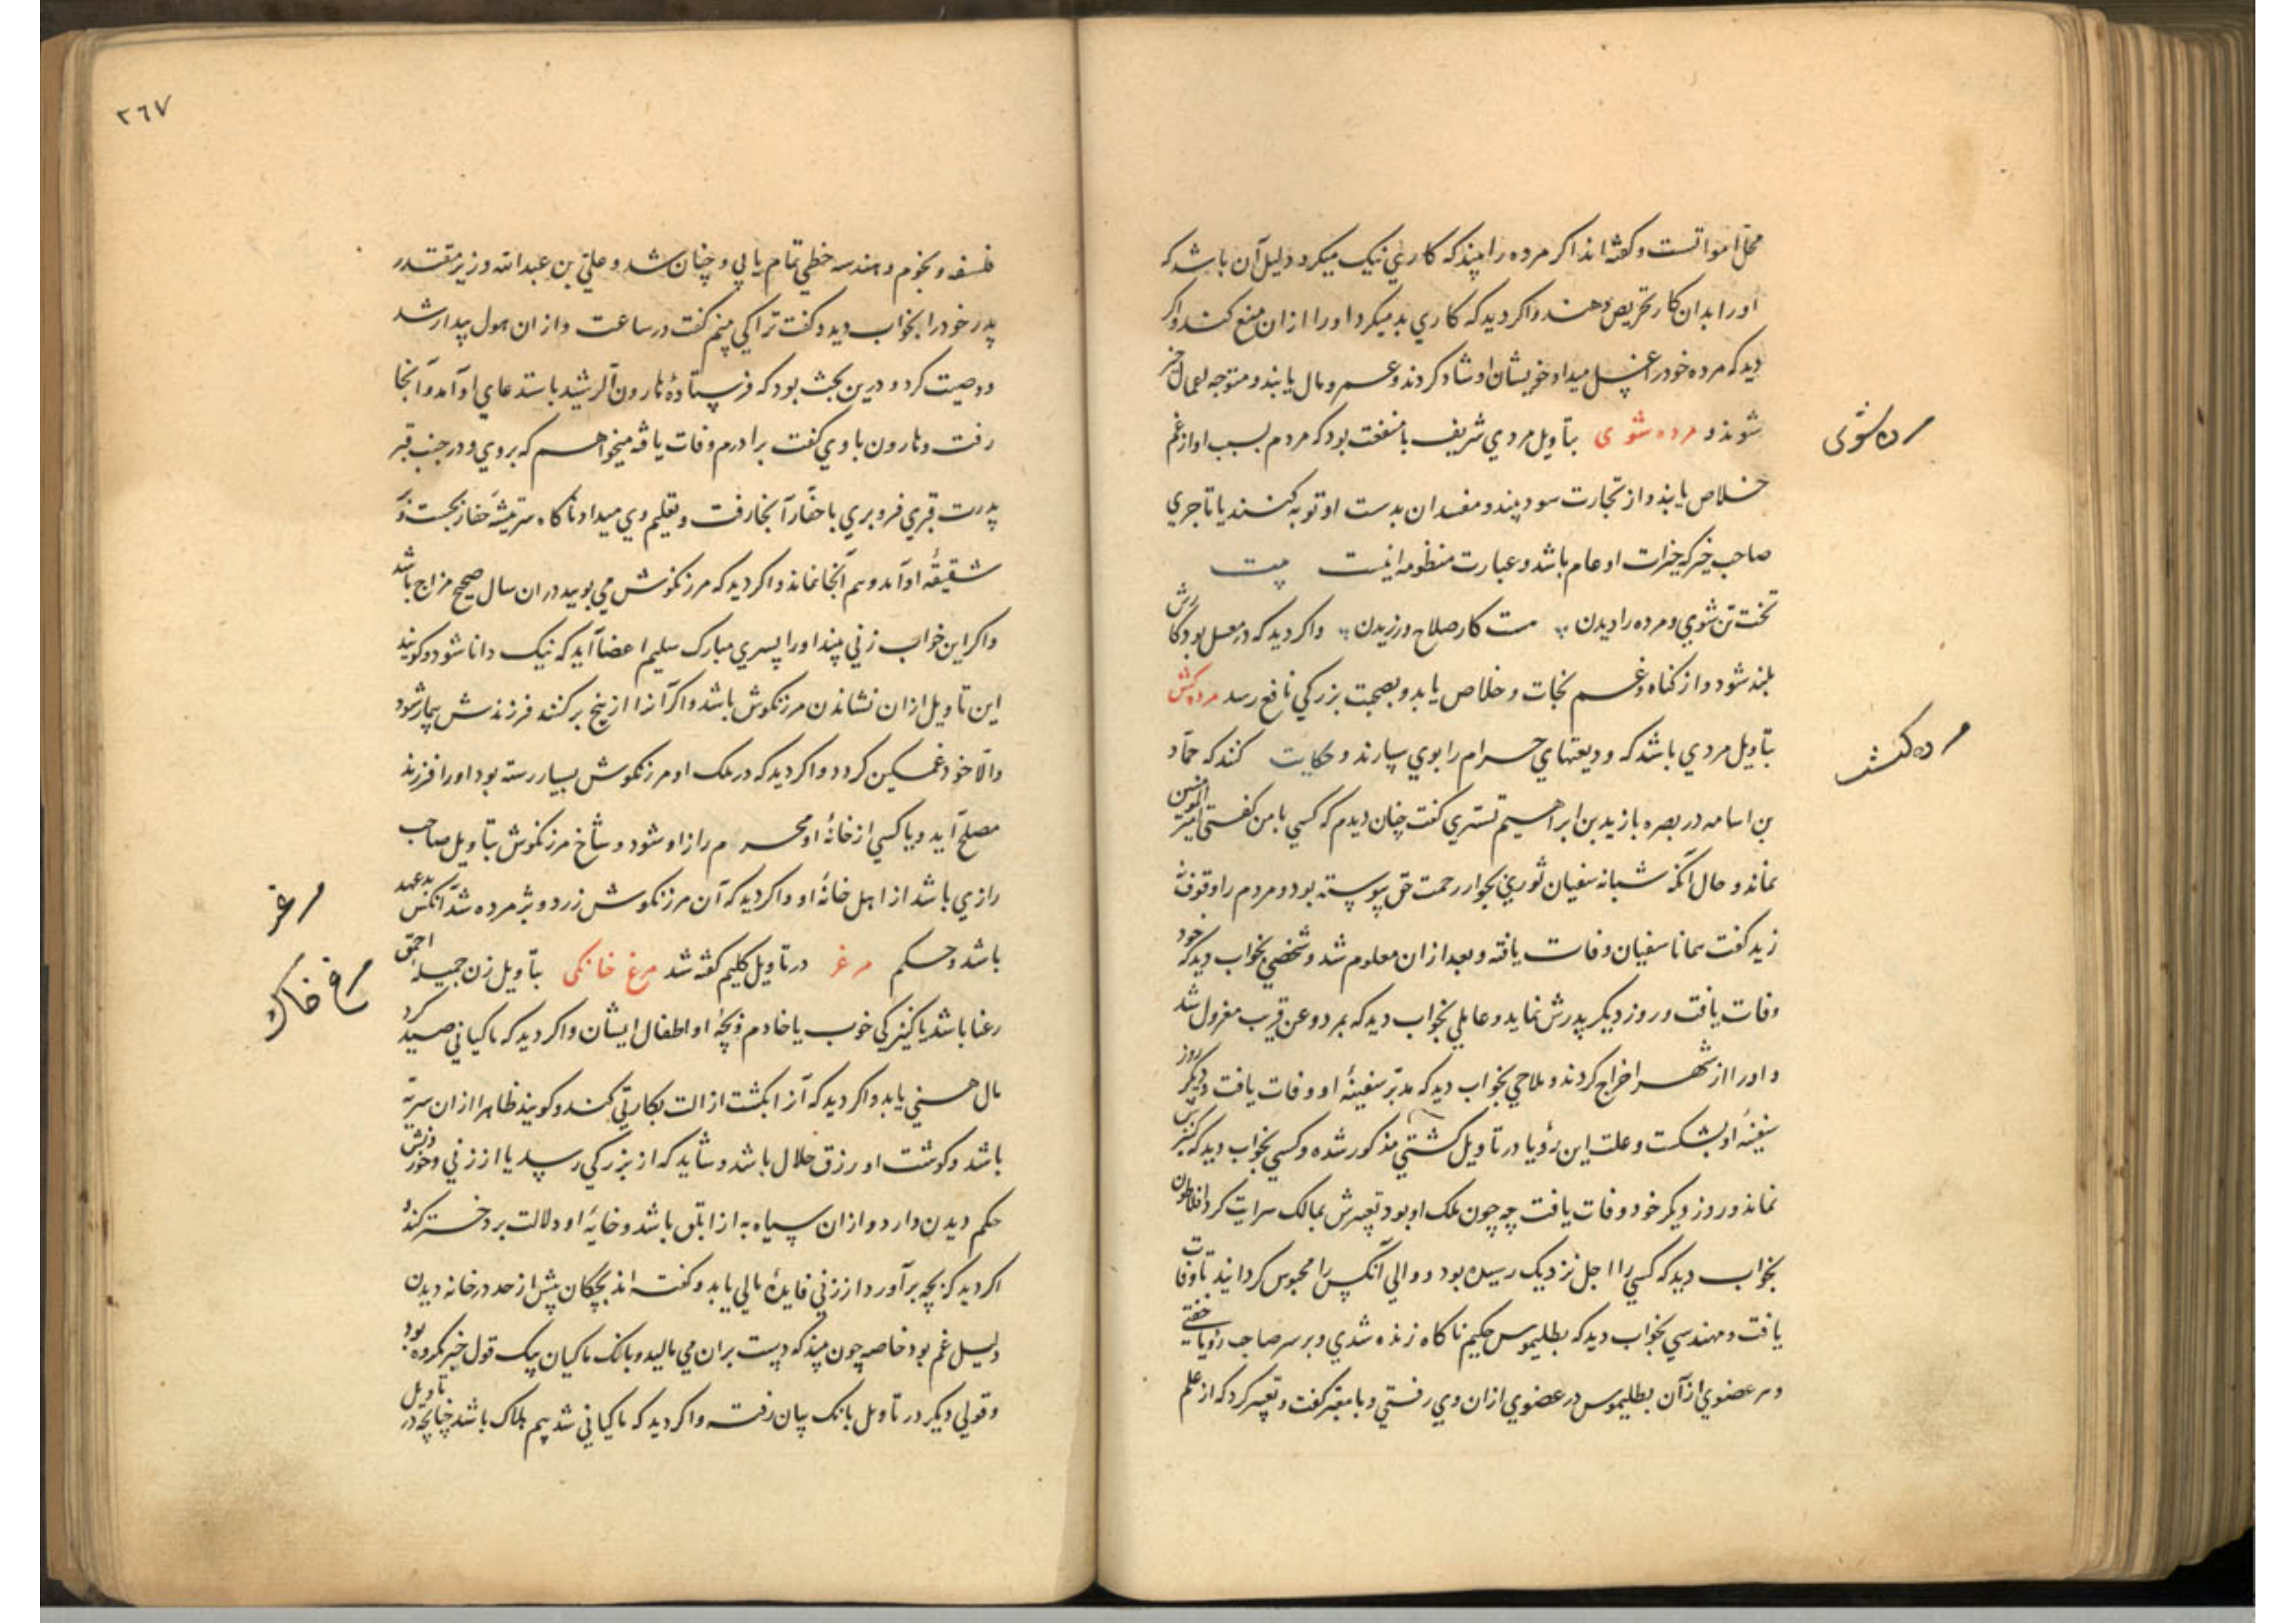 محلّ امواتست و گفته‌اند اگر مرده را بیند که کاری نیک میکرد دلیل آن باشد که
او را بدان کار تحریص دهند و اگر دید که کاری بد میکرد او را ازان منع کنند و اگر
دید که مرده خود را غسل میداد خویشان او شاد گردند و عمر و مال یابند و متوجه اعمال خیر
شوند و مرده شوی بتأویل مردی شریف با منفعت بود که مردم بسبب او از غم
خلاص یابند و از تجارت سود بیند و مفسدان بدست او توبه کنند یا تاجری
صاحب خیر که خیرات او عام باشد و عبارت منظومه اینست بیت
تخت تن شوی و مرده را دیدن هست کار صلاح ورزیدن و اگر دید که در مغسل بود کارش
بلند شود و از گناه و غم نجات و خلاص یابد و بصحبت بزرگی نافع رسد مرده‌کش
بتأویل مردی باشد که ودیعتهای حرام را بوی سپارند و حکایت کنند که حمّاد
بن اسامه در بصره با زید بن ابراهیم تستری گفت چنان دیدم که کسی با من گفتی امیر المؤمنین
نماند و حال آنکه شبانه سفیان ثوری بجوار رحمت حق پیوسته بود و مردم را وقوف نه
زید گفت همانا سفیان وفات یافته و بعد ازان معلوم شد و شخصی بخواب دید که خود
وفات یافت و روز دیگر پدرش نماند و عاملی بخواب دید که بمرد و عن قریب معزول شد
و او را از شهر اخراج کردند و ملاحی بخواب دید که مدبّر سفینهٔ او وفات یافت و دیگر روز
سفینهٔ او بشکست و علت این رؤیا در تأویل کشتی مذکور شده و کسی بخواب دید که کنیزش
نماند و روز دیگر خود وفات یافت چه چون ملک او بود تعبیرش بمالک سرایت کرد افلاطون
بخواب دید که کسی را اجل نزدیک رسیده بود و والی آنکس را محبوس گردانید تا وفات
یافت و مهندسی بخواب دید که بطلیموس حکیم ناگاه زنده شدی و بر سر صاحب رؤیا خفتی
و هر عضوی از آن بطلیموس در عضوی ازان وی رفتی و با معبّر گفت و تعبیر کرد که از علم
مرده‌شوی
مرده‌کش
٢٦٧
فلسفه و نجوم و هندسه حظی تمام یابی و چنان شد و علی بن عبدالله وزیر مقتدر
پدر خود را بخواب دید و گفت ترا کی بینم گفت در ساعت و از ان هول بیدار شد
و وصیت کرد و درین بحث بود که فرستادهٔ هارون الرشید باستدعای او آمد و آنجا
رفت و هارون با وی گفت برادرم وفات یافه میخواهم که بروی و در جنب قبر
پدرت قبری فرو بری با حفّار آنجا رفت و تعلیم وی میداد ناگاه سر تیشهٔ حفّار بجست و
شقیقهٔ او آمد و هم آنجا نماند و اگر دید که مرزنگوش می بویید در ان سال صحیح مزاج باشد
و اگر این خواب زنی بیند او را پسری مبارک سلیم اعضا آید که نیک دانا شود و گویند
این تأویل ازان نشاندن مرزنگوش باشد و اگر آنرا از بیخ بر کنند فرزندش بیمار شود
و الّا خود غمگین گردد و اگر دید که در ملک او مرزنگوش بسیار رسته بود او را فرزند
مصلح آید و یا کسی از خانهٔ او محرم راز او شود و شاخ مرزنگوش بتأویل صاحب
رازی باشد از اهل خانهٔ او و اگر دید که آن مرزنگوش زرد و پژمرده شد آنکس بدعهد
باشد و حکم مرغ در تأویل کلیم گفته شد مرغ خانگی بتأویل زن جمیلهٔ احمق
رعنا باشد یا کنیزکی خوب یا خادم و بچهٔ او اطفال ایشان و اگر دید که ماکیانی صید کرد
مال هنی یابد و اگر دید که آنرا بکشت ازالت بکارتی کند و گویند ظاهرا ازان سریّه
باشد و گوشت او رزق حلال باشد و شاید که از بزرگی رسد یا از زنی و خوردنش
حکم دیدن دارد و ازان سیاه به از ابلق باشد و خایهٔ او دلالت بر دختر کند و
اگر دید که بچه برآورد از زنی فایدهٔ مالی یابد و گفته‌اند بچگان بیش از حد در خانه دیدن
دلیل غم بود خاصه چون بیند که دست بران می مالید و بانگ ماکیان بیک قول خبر مکروه بود
و قولی دیگر در تأویل بانگ بیان رفته و اگر دید که ماکیانی شد بیم هلاک باشد چنانچه در تأویل
مرغ
مرغ خانگی